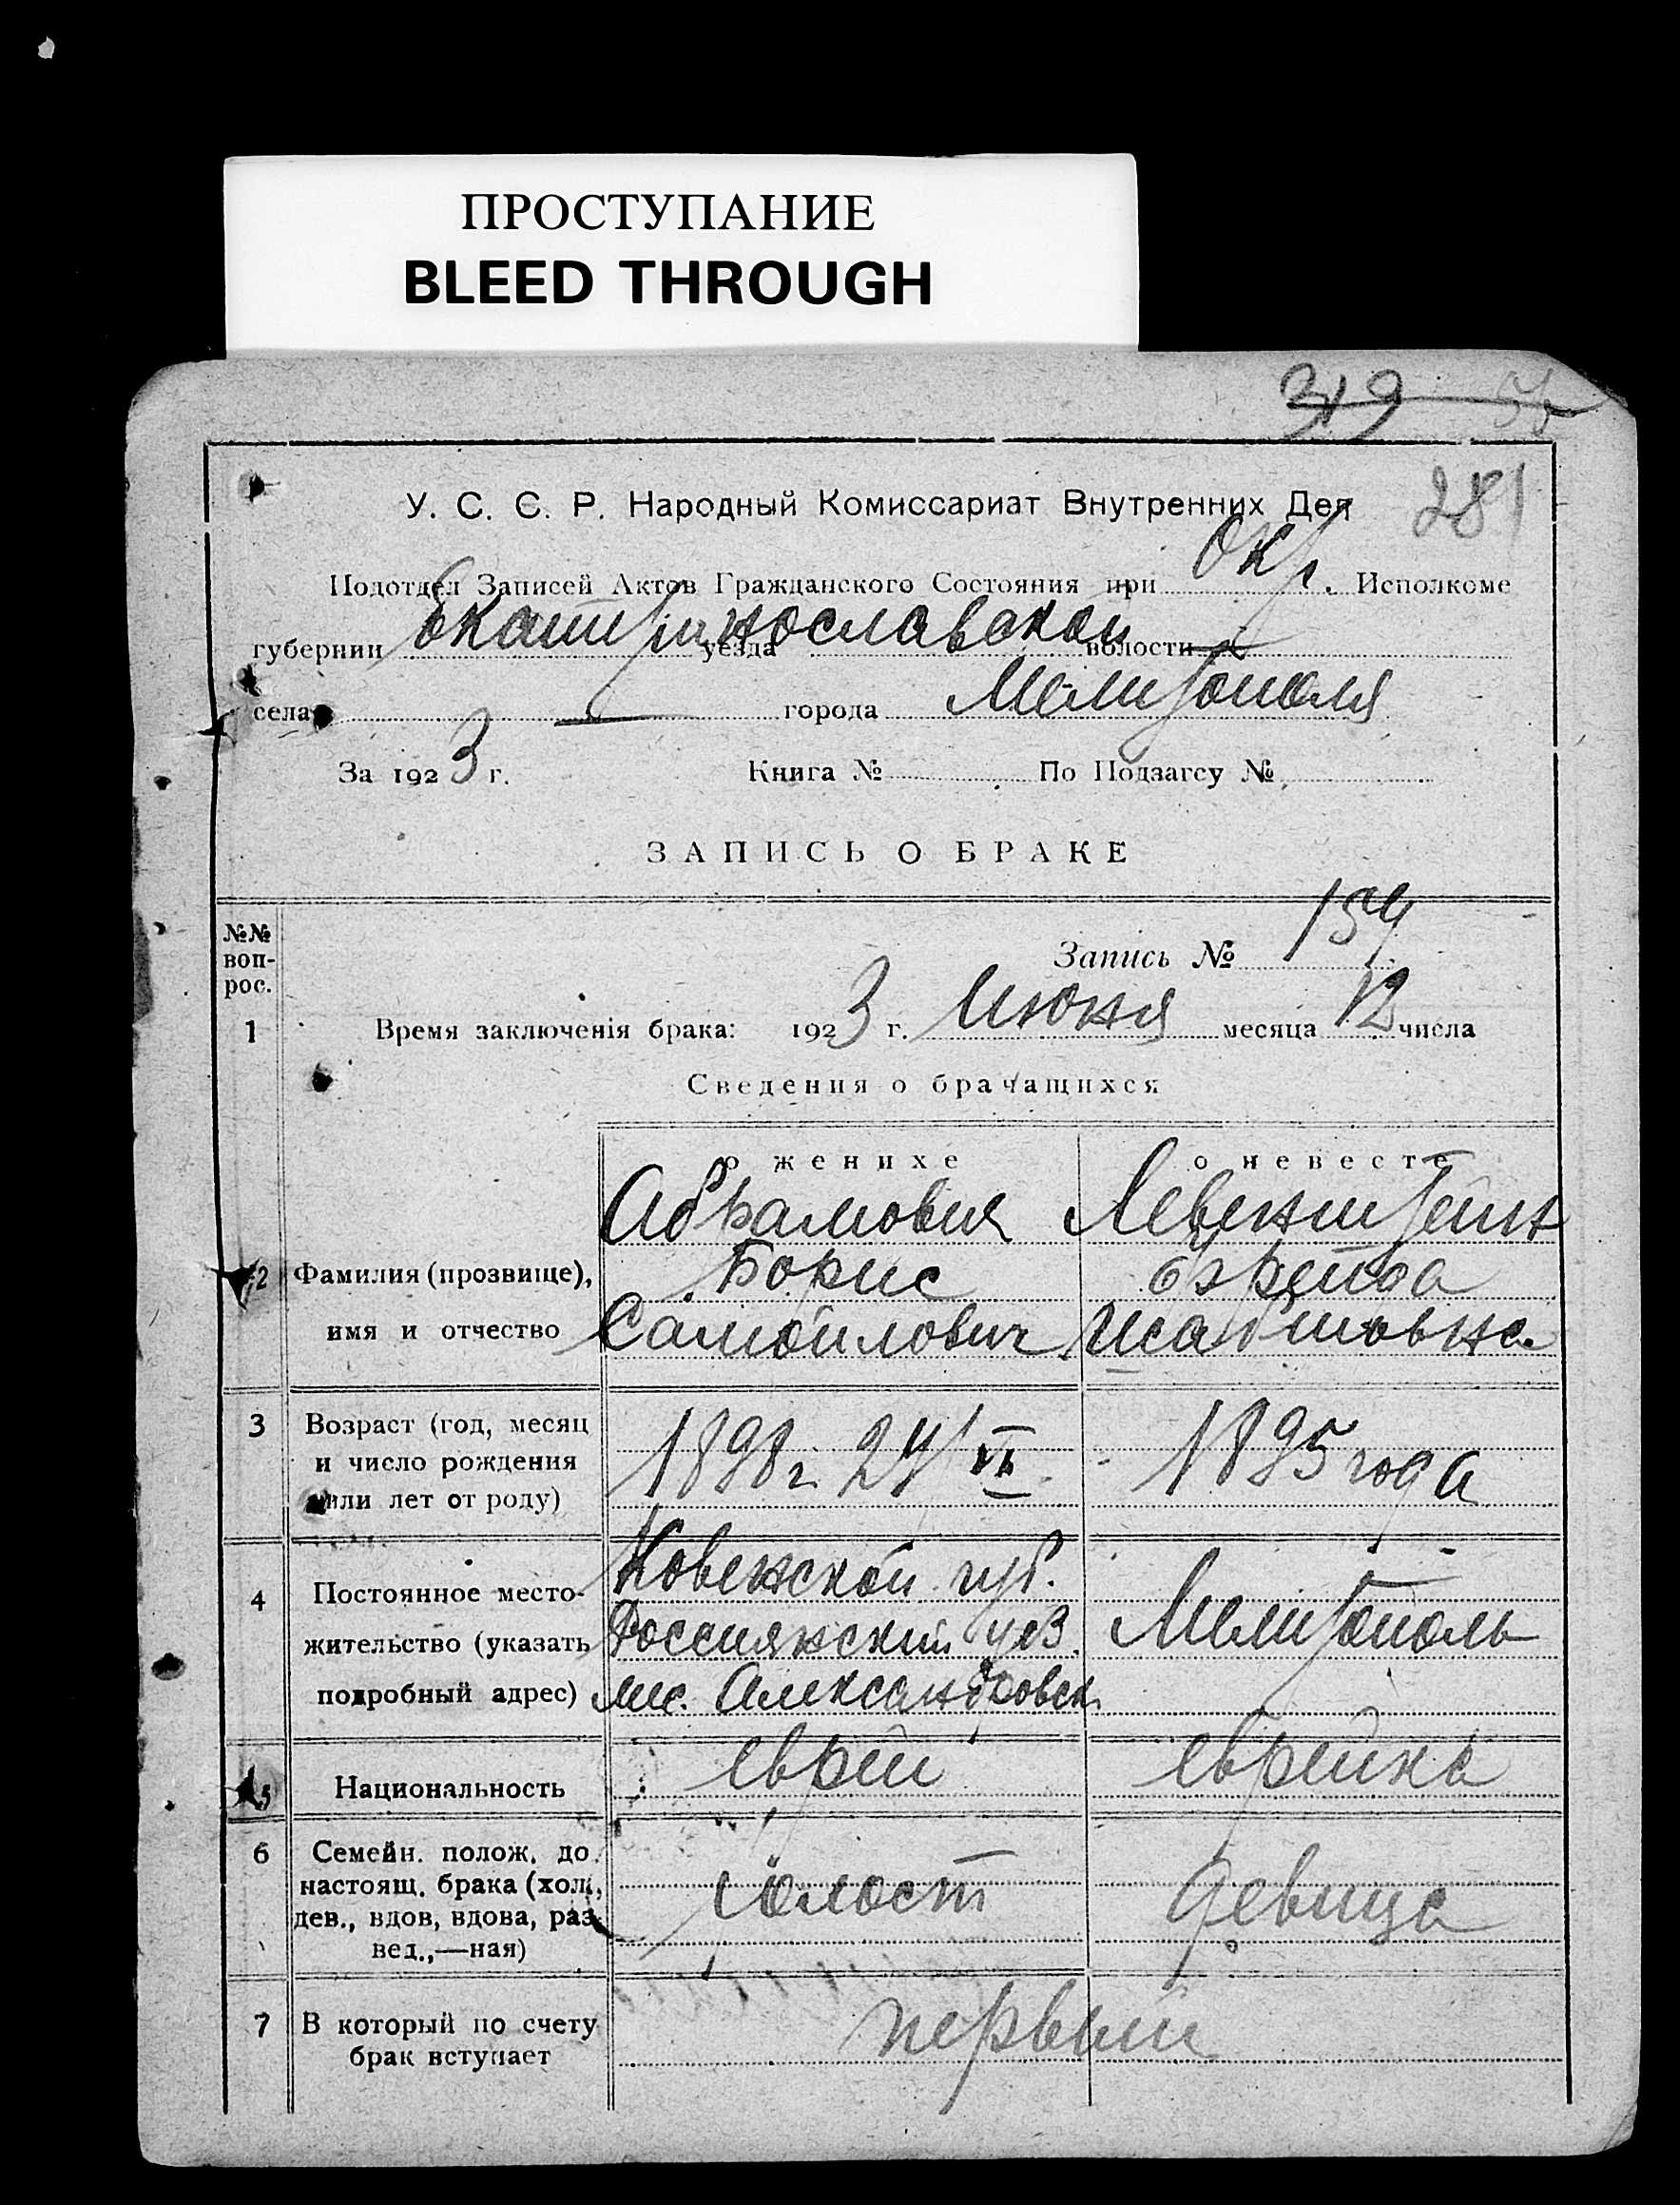 ПРОСТУПАНИЕ
BLEED THROUGH
319
281
У. С. С. Р. Народный Комиссариат Внутренних Дел
Подотдел Записей Актов Гражданского Состояния при Окр. Исполкоме
губернии Екатеринославской уезда волости
села — города Мелитополя
За 1923 г. Книга № По Подзагсу №
ЗАПИСЬ О БРАКЕ
№№ воп-рос.
Запись № 154
1 Время заключенія брака: 1923 г. Июня месяца 12 числа
Сведения о брачащихся
о женихе о невесте
Абрамович Левенштейн
2 Фамилия (прозвище), Борис
имя и отчество Самойлович
3 Возраст (год, месяц
и число рождения 1898 г. 24/VI 1895 года
или лет от роду)
Ковенской губ.
4 Постоянное место-
жительство (указать Россиянский уез. Мелитополь
подробный адрес) мс. Александровск
5 Национальность еврей еврейка
6 Семейн. полож. до
настоящ. брака (хол., холост девица
дев., вдов, вдова, раз-
вед.,—ная)
7 В который по счету первый
брак вступает